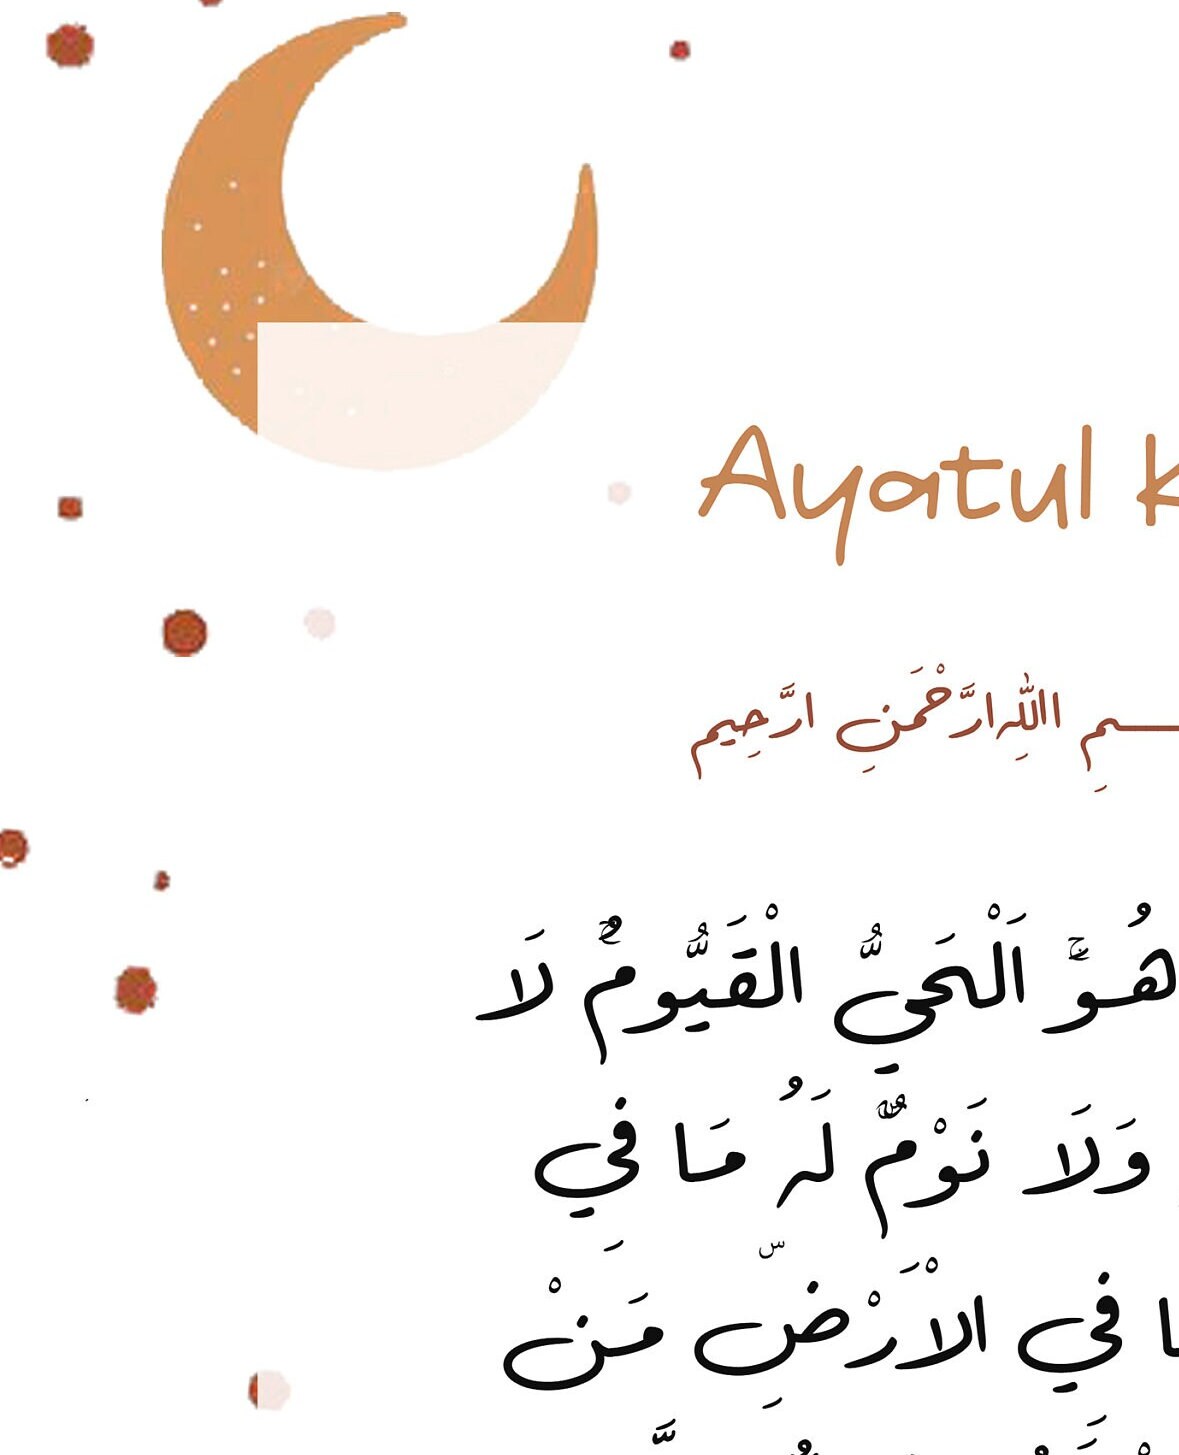 Ayatul K
ـسمِ اللّٰهِ ارَّحْمَنِ ارَّحِيم
هُوَۚ اَلْحَيُّ الْقَيُّومُ لَا
وَلَا نَوْمٌ لَهُ مَا فِي
ا فِي الْاَرْضِ مَنْ